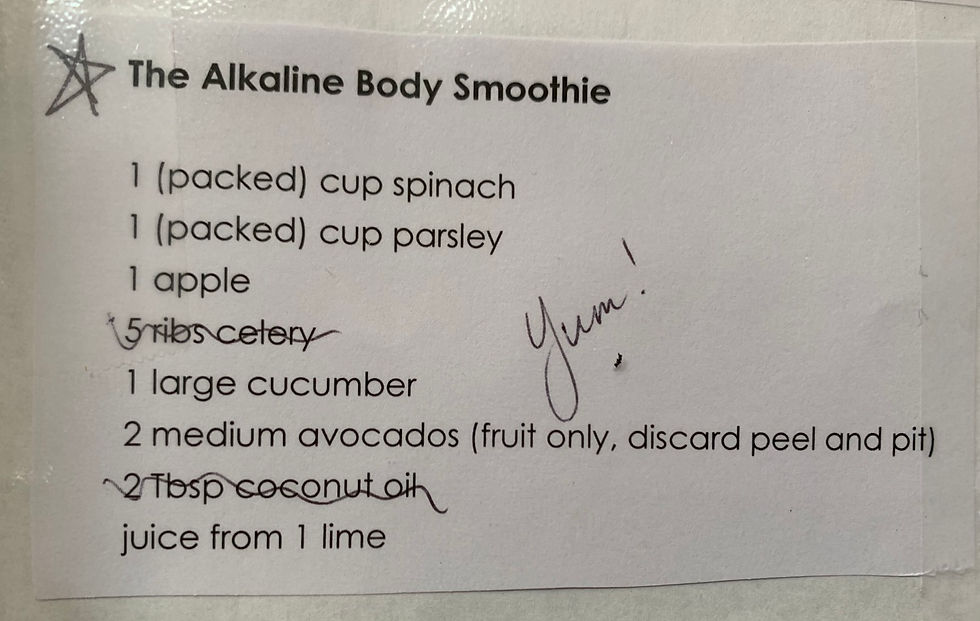 The Alkaline Body Smoothie
1 (packed) cup spinach
1 (packed) cup parsley
1 apple
5 ribs celery
1 large cucumber
Yum!
2 medium avocados (fruit only, discard peel and pit)
2 Tbsp coconut oil
juice from 1 lime